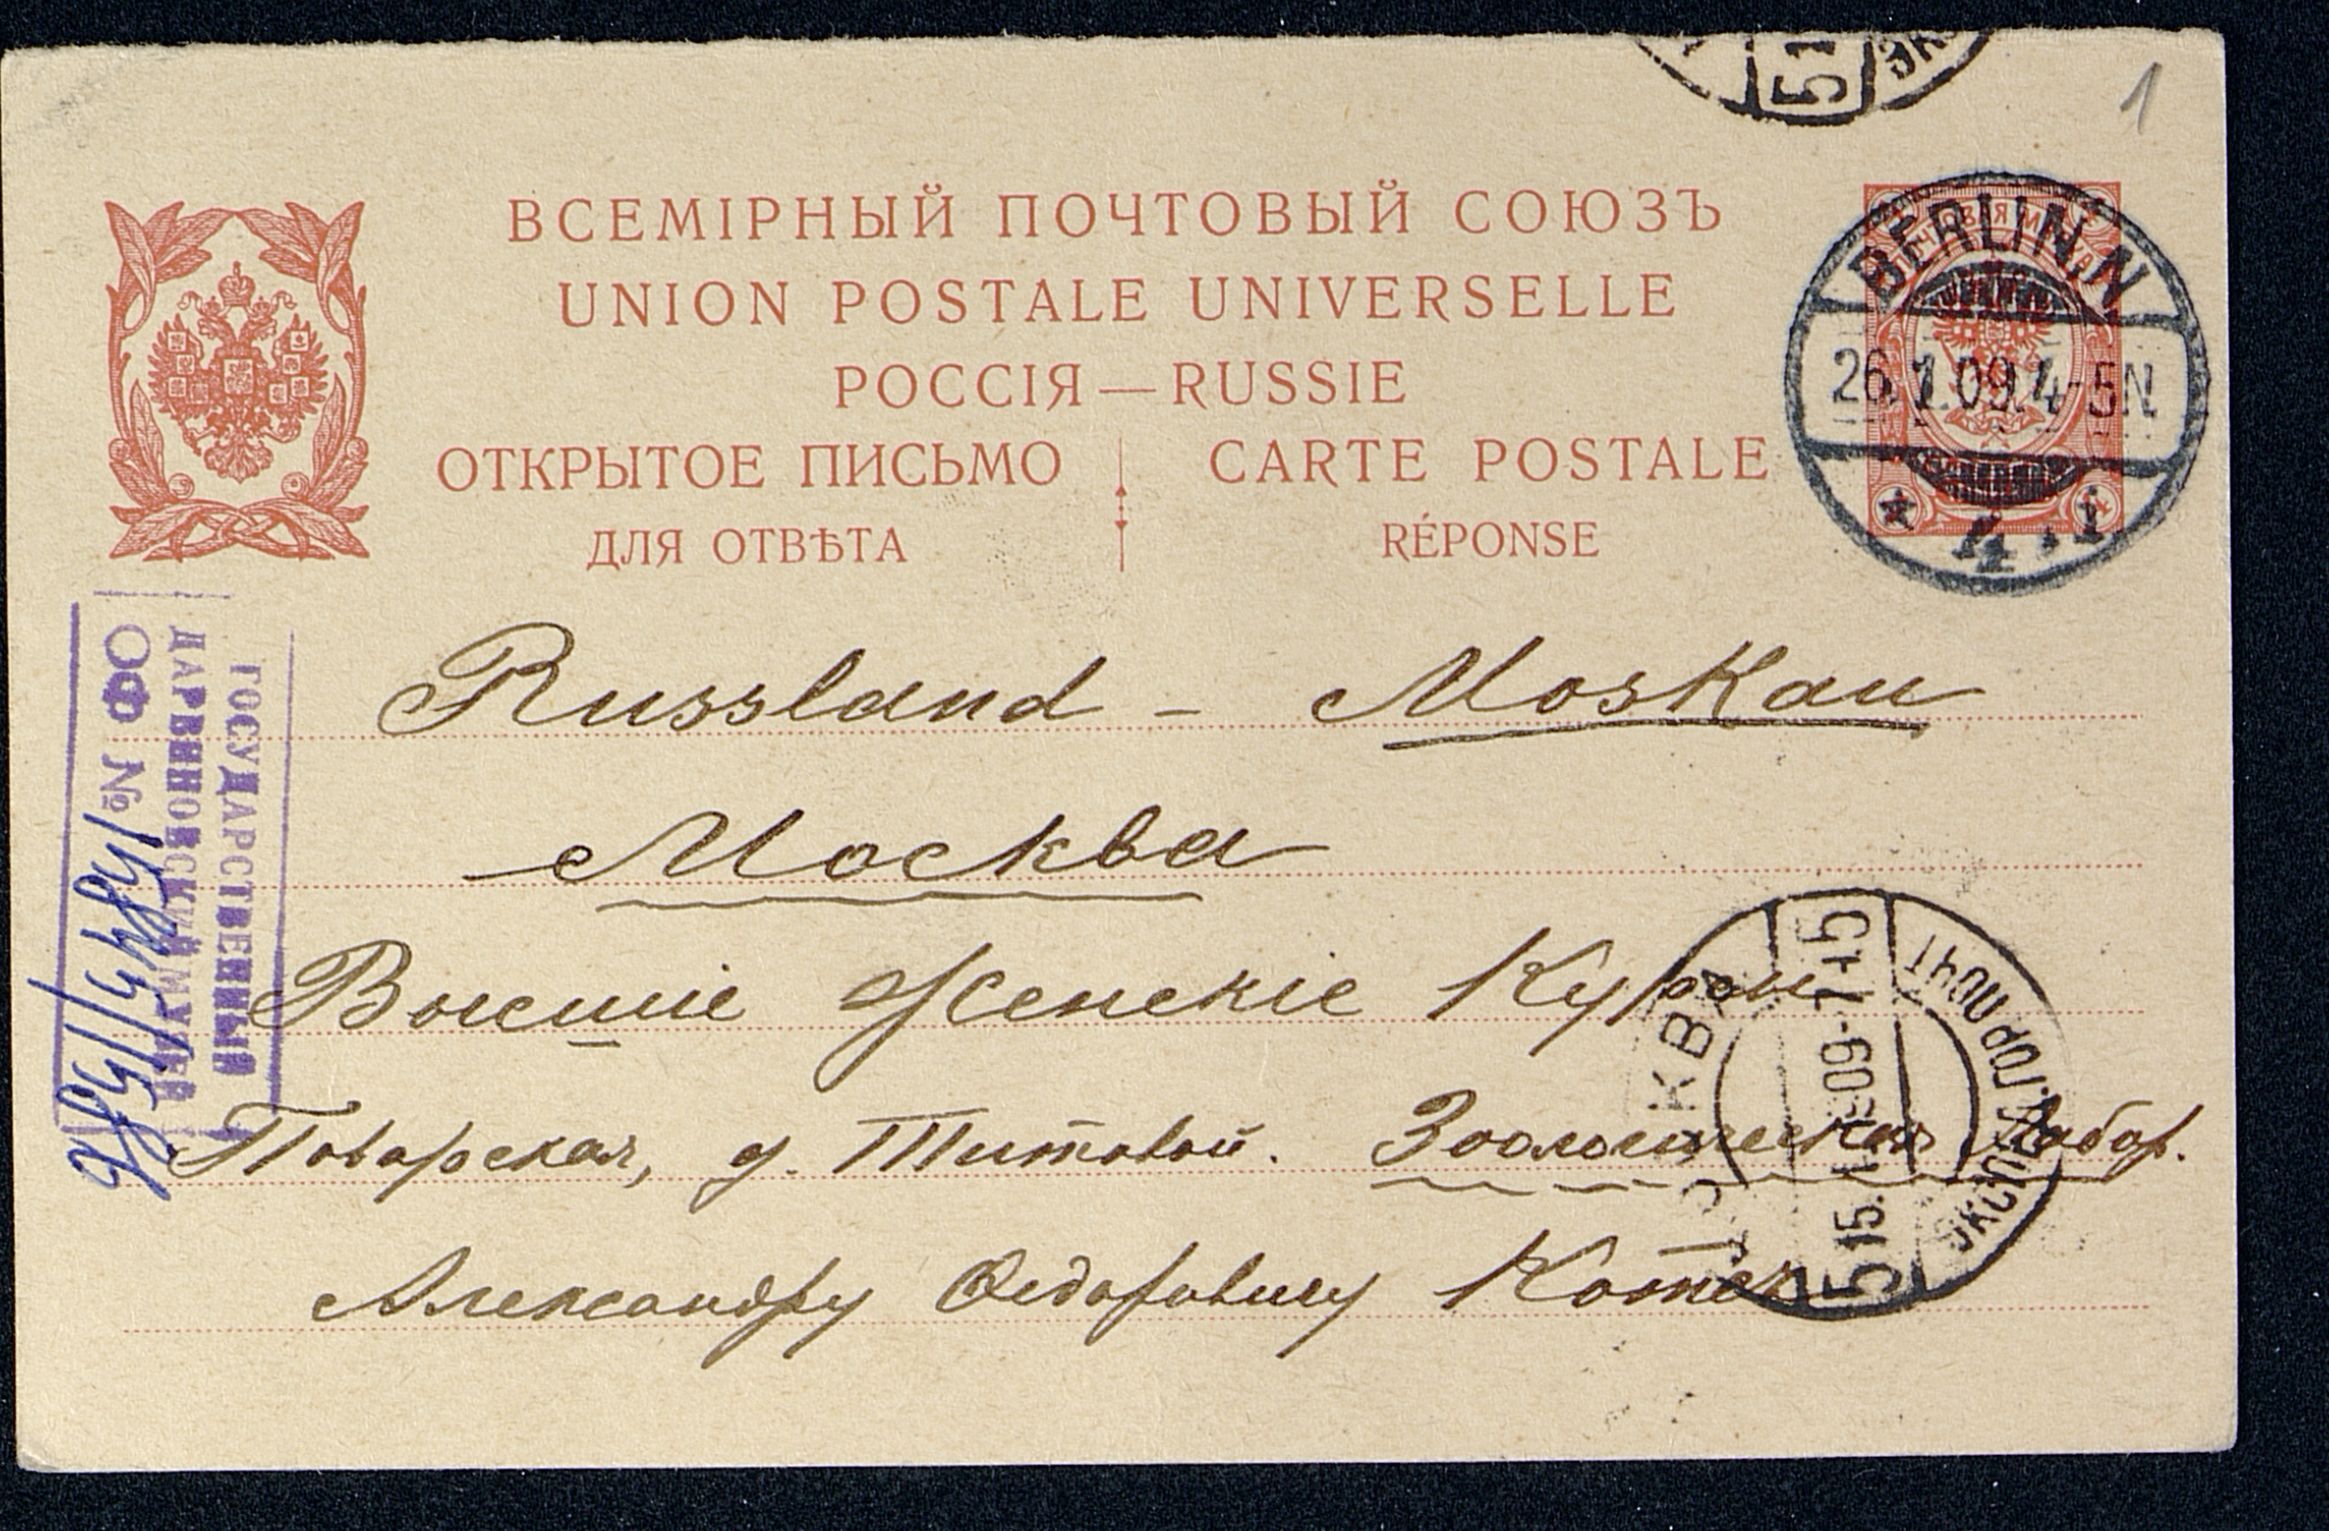 1
ВСЕМІРНЫЙ ПОЧТОВЫЙ СОЮЗЪ
UNION POSTALE UNIVERSELLE
РОССІЯ — RUSSIE
ОТКРЫТОЕ ПИСЬМО
ДЛЯ ОТВѢТА
CARTE POSTALE
RÉPONSE
BERLIN.N
26.1.09.4-5N
* 4.i.
Russland - Moskau
Москва
Высшіе Женскіе Курсы
Поварская, д. Титовой. Зоологическая Лабор.
Александру Федоровичу Котсъ
ГОСУДАРСТВЕННЫЙ
ДАРВИНОВСКИЙ МУЗЕЙ
ОФ №
МОСКВА
5 15.1.09-7 15
ЭКСПЕД.ГОР.ПОЧТ
5 1
ЭК